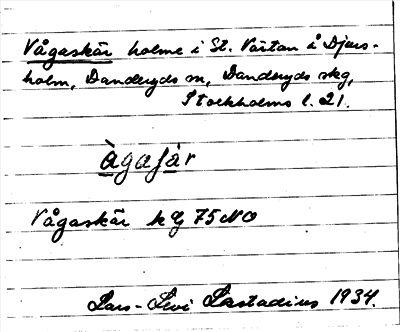 Vågaskär holme i St. Värtan å Djurs-
holm, Danderyds sn, Danderyds skg,
Stockholms l. 21.
àgaʃàr
Vågaskär kG 75 NO
Lars-Levi Læstadius 1934.